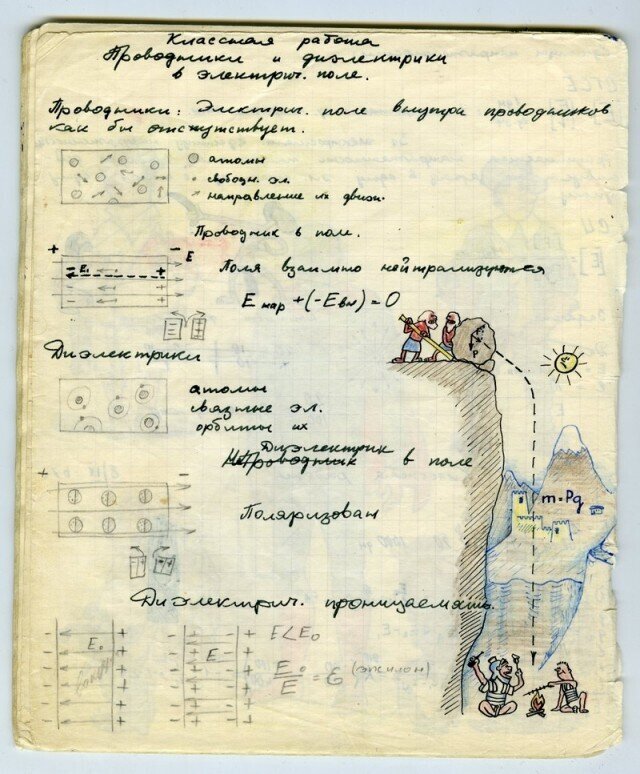 Классная работа
Проводники и диэлектрики
в электрич. поле.
Проводники: Электрич. поле внутри проводников
как бы отсутствует.
атомы
свободн. эл.
направление их движ.
Проводник в поле.
+ - E
E₁
Поля взаимно нейтрализуются
E нар + (-E вн) = 0
Диэлектрики
атомы
связные эл.
орбиты их
Диэлектрик
Проводник в поле
Поляризован
m=Pg
Диэлектрич. проницаемость.
E₀ E E<E₀
E₀/E = ε (эпсилон)